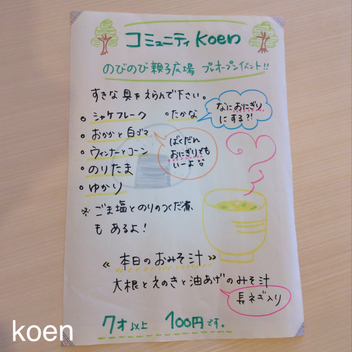 コミュニティ Koen
のびのび親子広場 プレオープンイベント!!
すきな具をえらんで下さい。
・シャケフレーク ・たかな
なにおにぎりにする?!
・おかかと白ゴマ
・ウィンナーとコーン
ばくだんおにぎりでもいーよな
・のりたま
・ゆかり
※ ごま塩とのりのつくだ煮、
も あるよ!
≪ 本日のおみそ汁 ≫
大根とえのきと油あげのみそ汁
長ネギ入り
7才以上 100円です。
koen